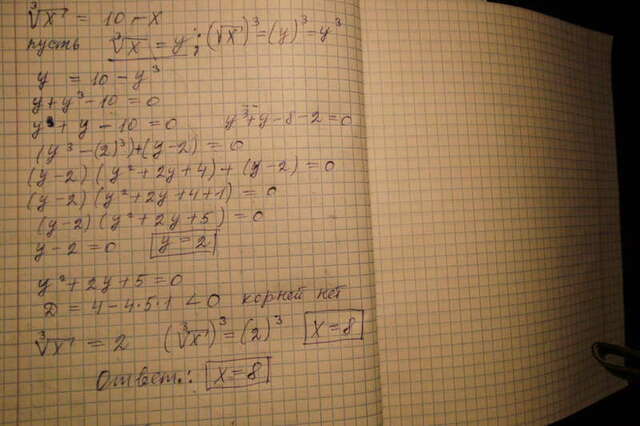 ∛x = 10 - x
пусть ∛x = y; (∛x)³ = (y)³ = y³
y = 10 - y³
y + y³ - 10 = 0
y³ + y - 10 = 0 y³ + y - 8 - 2 = 0
(y³ - (2)³) + (y - 2) = 0
(y - 2)(y² + 2y + 4) + (y - 2) = 0
(y - 2)(y² + 2y + 4 + 1) = 0
(y - 2)(y² + 2y + 5) = 0
y - 2 = 0 y = 2
y² + 2y + 5 = 0
D = 4 - 4·5·1 < 0 корней нет
∛x = 2 (∛x)³ = (2)³ x = 8
Ответ: x = 8